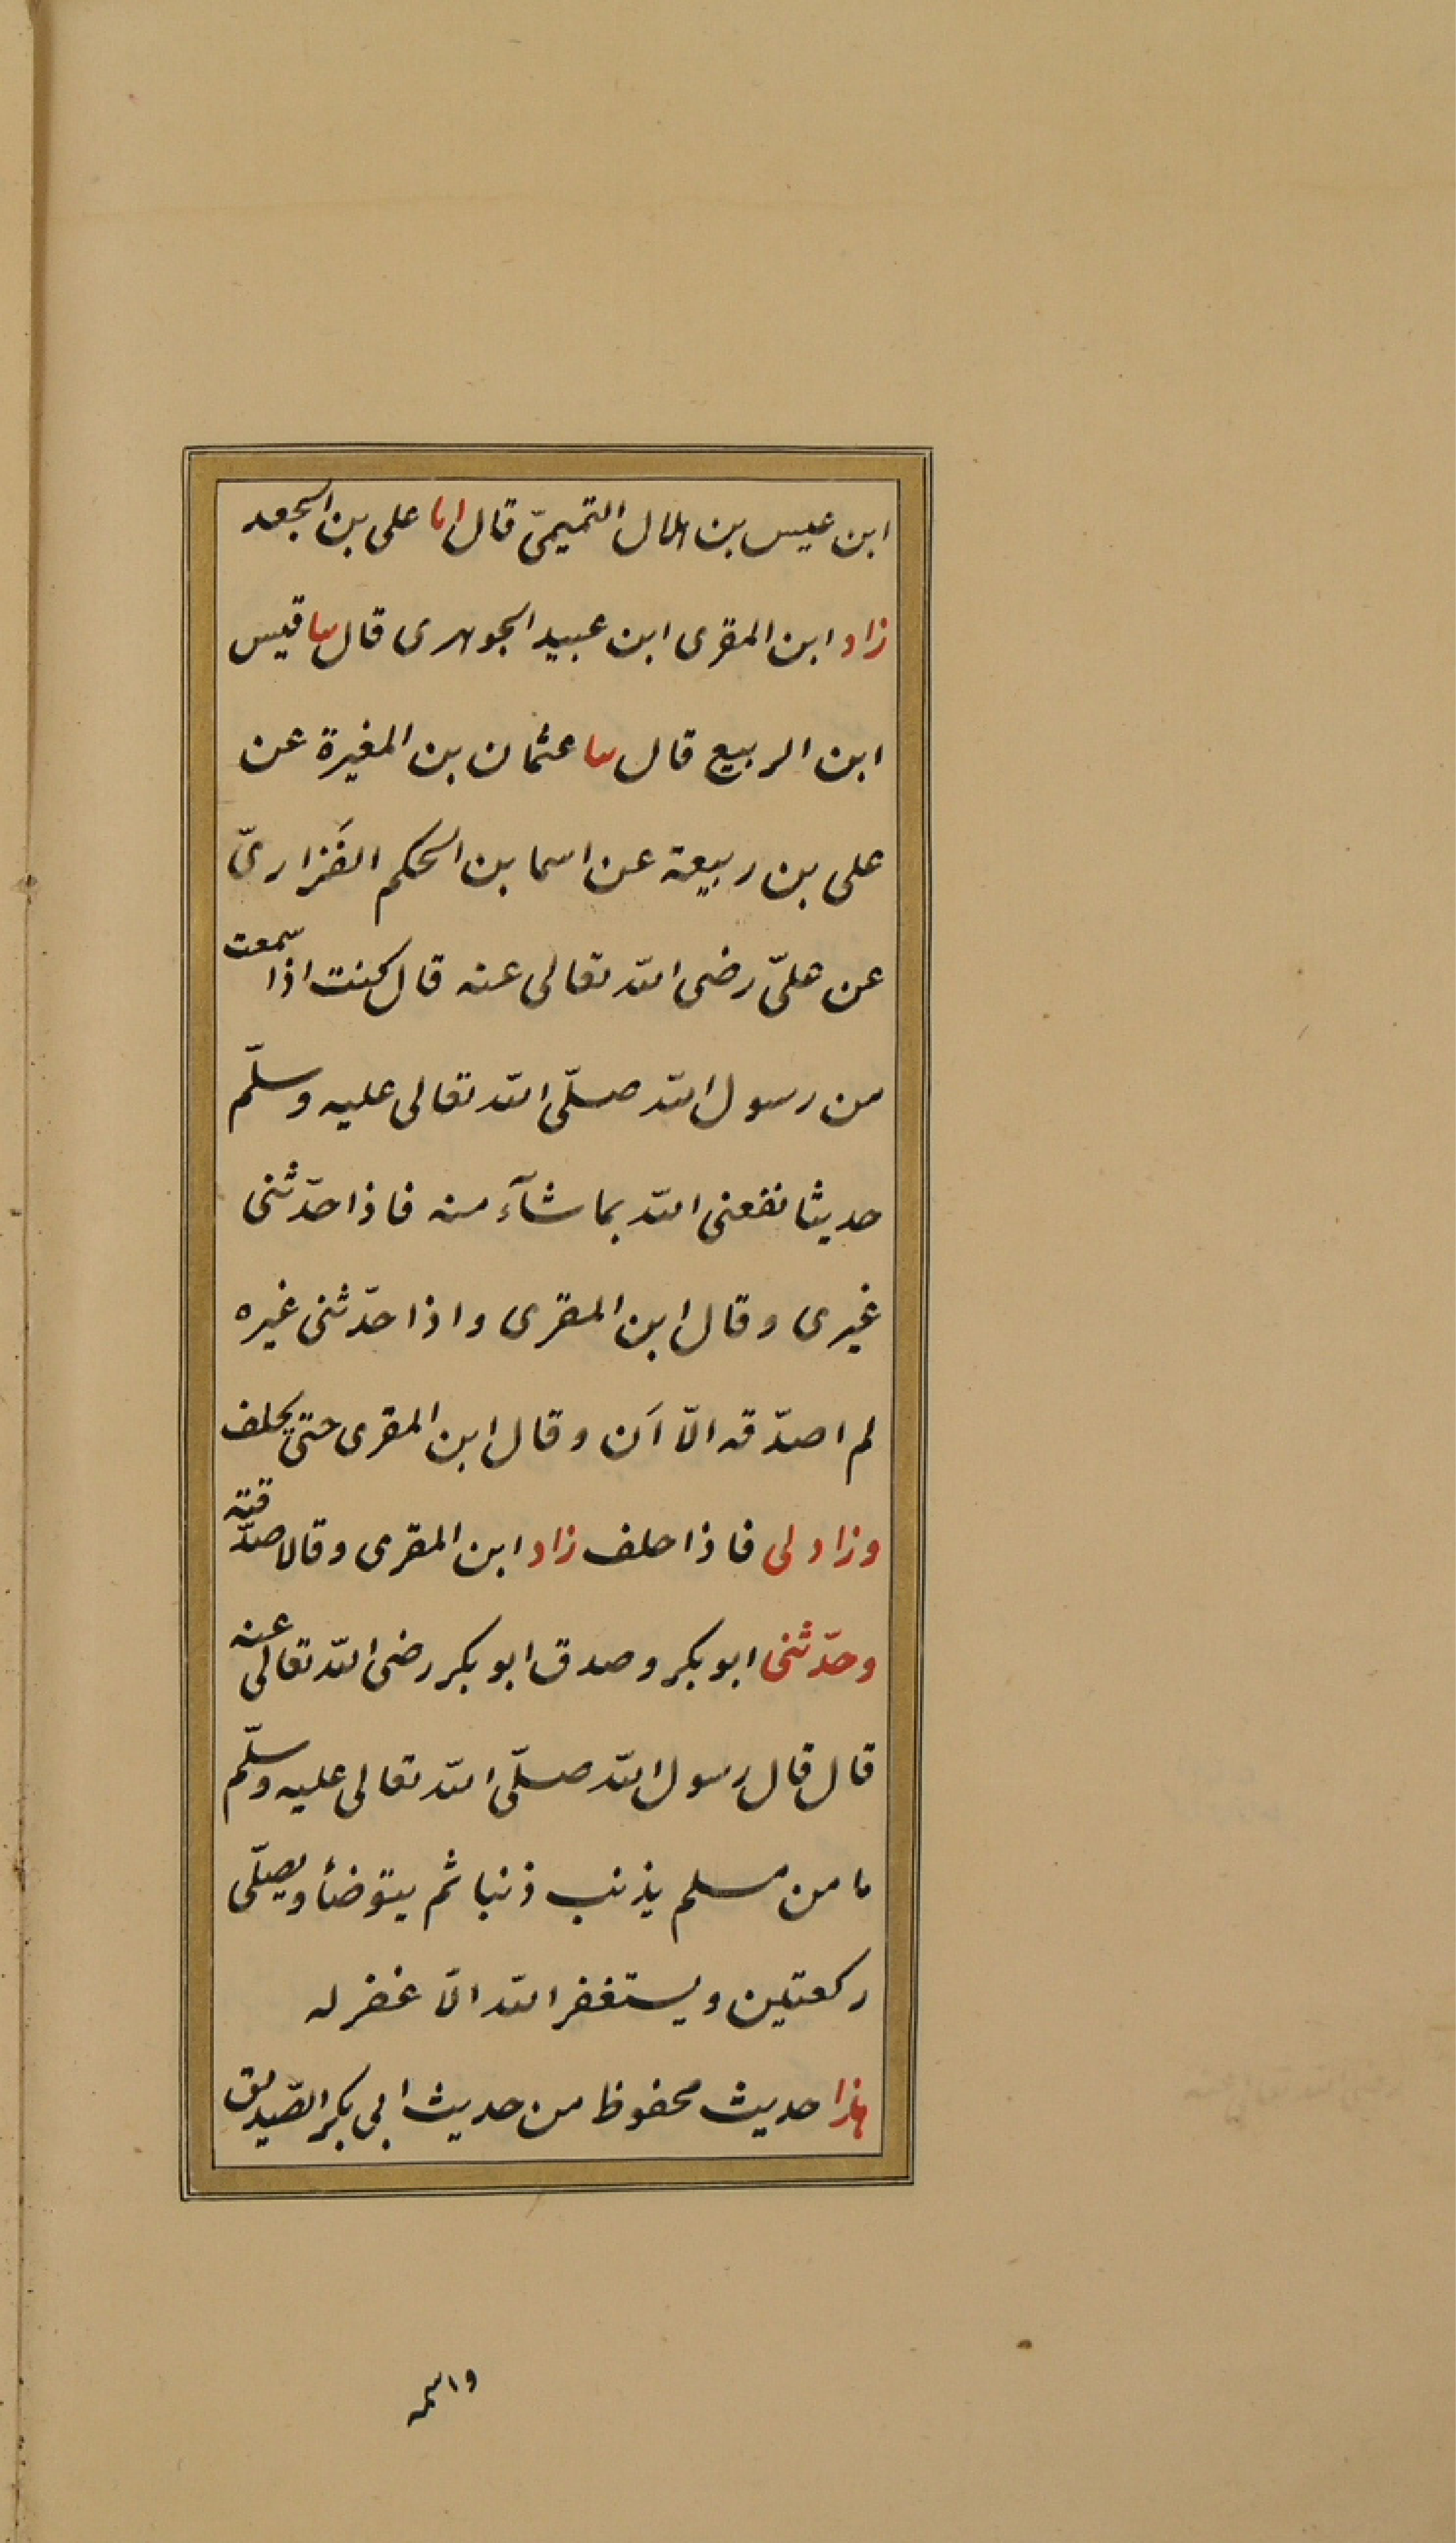 ابن عيس بن الال التميمىّ قال انا على بن الجعد
زاد ابن المقرى ابن عبيد الجوهرى قال سا قيس
ابن الربيع قال سا عثمان بن المغيرة عن
على بن ربيعة عن اسما بن الحكم الفَزارىّ
عن علىّ رضى الله تعالى عنه قال كنت اذا سمعت
من رسول الله صلّى الله تعالى عليه وسلّم
حديثا نفعنى الله بما شآء منه فاذا حدّثنى
غيرى وقال ابن المقرى واذا حدّثنى غيره
لم اصدّقه الّا اَن وقال ابن المقرى حتى يحلف
وزاد لى فاذا حلف زاد ابن المقرى وقالا صدّقته
وحدّثنى ابو بكر وصدق ابو بكر رضى الله تعالى عنه
قال قال رسول الله صلّى الله تعالى عليه وسلّم
ما من مسلم يذنب ذنبا ثم يتوضأ ويصلّى
ركعتين ويستغفر الله الّا غفر له
هذا حديث محفوظ من حديث ابى بكر الصّديق
واسمه